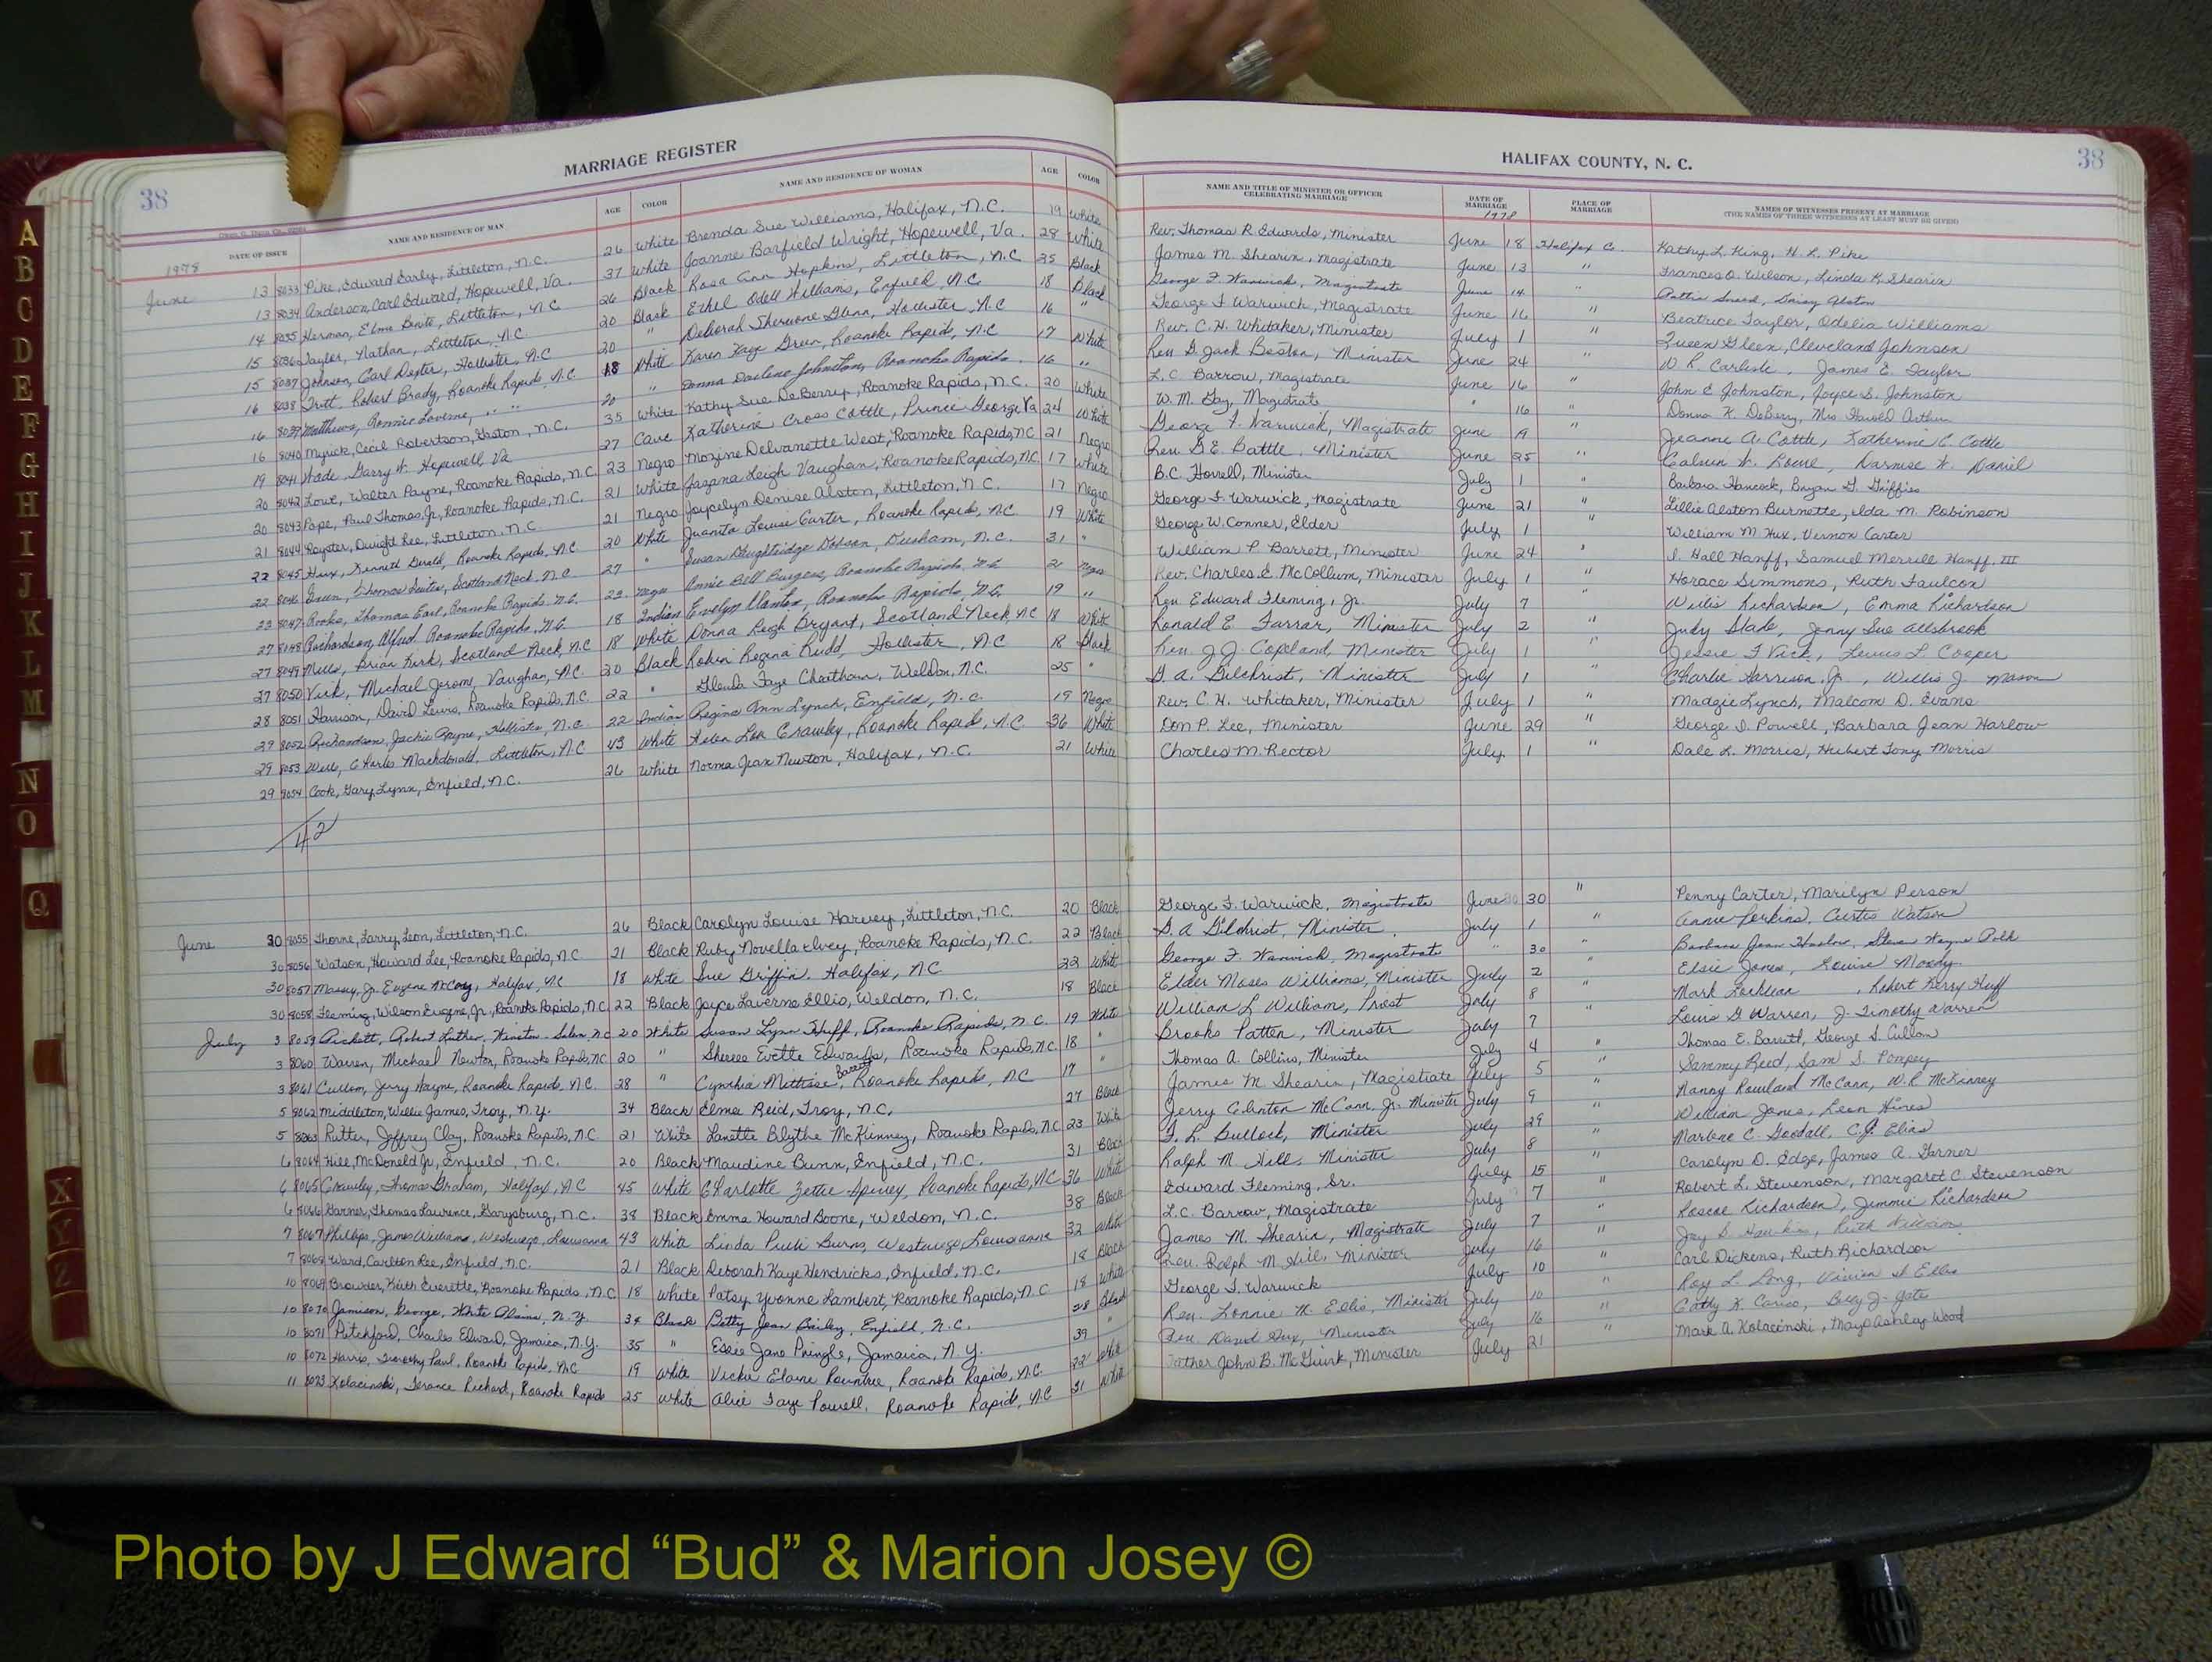 MARRIAGE REGISTER
HALIFAX COUNTY, N. C.
38
38
DATE OF ISSUE NAME AND RESIDENCE OF MAN AGE COLOR NAME AND RESIDENCE OF WOMAN AGE COLOR NAME AND TITLE OF MINISTER OR OFFICER CELEBRATING MARRIAGE DATE OF MARRIAGE PLACE OF MARRIAGE NAMES OF WITNESSES PRESENT AT MARRIAGE (THE NAMES OF THREE WITNESSES AT LEAST MUST BE GIVEN)
1978 1978
June 13 8033 Pike, Edward Early, Littleton, N.C. 26 White Brenda Sue Williams, Halifax, N.C. 19 White Rev. Thomas R. Edwards, Minister June 18 Halifax Co. Kathy L. King, H. L. Pike
13 8034 Anderson, Carl Edward, Hopewell, Va. 37 White Joanne Barfield Wright, Hopewell, Va. 28 White James M. Shearin, Magistrate June 13 " Frances O. Wilson, Linda K. Shearin
14 8035 Herman, Elmo Benito, Littleton, N.C 26 Black Rosa Ann Hopkins, Littleton, N.C 35 Black George F. Warwick, Magistrate June 14 " Daisy Alston
15 8036 Taylor, Nathan, Littleton, N.C 20 Black Ethel Odell Williams, Enfield, N.C. 18 Black George F. Warwick, Magistrate June 16 " Beatrice Taylor, Odelia Williams
15 8037 Johnson, Carl Dexter, Hollister, N.C 20 " Deborah Glenn, Hollister, N.C 16 " Rev. C. H. Whitaker, Minister July 1 " Queen Glenn, Cleveland Johnson
16 8038 Robert Brady, Roanoke Rapids, N.C. 18 White Karen Faye Green, Roanoke Rapids, N.C 17 White Rev. G. Jack Minister June 24 " W. R. Carlisle, James E. Taylor
16 8039 Matthews, Ronnie " " 20 " Donna Darlene Johnston, Roanoke Rapids 16 " L. C. Barrow, Magistrate June 16 " John E. Johnston, Joyce S. Johnston
16 8040 Myrick, Cecil Robertson, Gaston, N.C. 35 White Kathy Sue DeBerry, Roanoke Rapids, N.C. 20 White W. M. Gay, Magistrate " 16 Donna K. DeBerry, Mrs Harold
19 8041 Wade, Garry W. Hopewell, Va 27 Cauc Katherine Cross Cottle, Prince George Va 24 White George F. Warwick, Magistrate June 19 " Jeanne A. Cottle, Katherine C. Cottle
20 8042 Lowe, Walter Payne, Roanoke Rapids, N.C. 23 Negro Mozine Delvanette West, Roanoke Rapids, NC 21 Negro Rev. G. E. Battle, Minister June 25 " Calvin W. Lowe, Daniel
20 8043 Pope, Paul Thomas, Jr, Roanoke Rapids, N.C. 21 White Leigh Vaughan, Roanoke Rapids, N.C. 17 White B.C. Howell, Minister July 1 " Barbara Hancock, Bryan
21 8044 Royster, Dwight Lee, Littleton, N.C. 21 Negro Joycelyn Denise Alston, Littleton, N.C. 17 Negro George F. Warwick, Magistrate June 21 " Lillie Alston Burnette, Ida M. Robinson
22 8045 Hux, Kenneth Gerald, Roanoke Rapids, N.C. 20 White Juanita Louise Carter, Roanoke Rapids, N.C 19 White George W. Conner, Elder July 1 " William M. Hux, Vernon Carter
22 8046 Thomas Scotland Neck, N.C. 27 " Susan Dughtridge Dobson, Durham, N.C. 31 " William P. Barrett, Minister June 24 " I. Hall Hanff, Samuel Merrill Hanff, III
23 8047 Rooks, Thomas Earl, Roanoke Rapids, N.C. 22 Negro Annie Bell Burgess, Roanoke Rapids, N.C 21 Negro Rev. Charles E. McCollum, Minister July 1 " Horace Simmons, Ruth Faulcon
27 8048 Richardson, Alfred, Roanoke Rapids, N.C 18 Indian Evelyn Roanoke Rapids, N.C. 19 " Rev. Edward Fleming, Jr. July 7 " Willis Richardson, Emma Richardson
27 8049 Mills, Brian Kirk, Scotland Neck, N.C 18 White Donna Leigh Bryant, Scotland Neck NC 18 White Ronald E. Farrar, Minister July 2 " Judy Slade, Jenny Sue Allsbrook
27 8050 Vick, Michael Jerome, Vaughan, N.C. 20 Black Robin Regina Rudd, Hollister, N.C 18 Black Rev. J. J. Copeland, Minister July 1 " Jessie F. Vick, Lewis L. Cooper
28 8051 Harrison, David Lewis, Roanoke Rapids, N.C. 22 " Glenda Faye Cheatham, Weldon, N.C. 25 " G. A. Gilchrist, Minister July 1 " Charlie Harrison, Jr., Willis J. Mason
29 8052 Richardson, Jackie Payne, Hollister, N.C. 22 Indian Regina Ann Lynch, Enfield, N.C. 19 Negro Rev. C. H. Whitaker, Minister July 1 " Madgie Lynch, Malcom D. Evans
29 8053 Charles Mackdonald, Littleton, N.C 43 White Helen Lou Crawley, Roanoke Rapids, N.C 36 White Don P. Lee, Minister June 29 " George D. Powell, Barbara Jean Harlow
29 8054 Cook, Gary Lynn, Enfield, N.C. 26 White Norma Jean Newton, Halifax, N.C. 21 White Charles M. Rector July 1 " Dale L. Morris, Hubert Tony Morris
42
June 30 8055 Thorne, Larry Leon, Littleton, N.C. 26 Black Carolyn Louise Harvey, Littleton, N.C. 20 Black George F. Warwick, Magistrate June 30 " Penny Carter, Marilyn Person
30 8056 Watson, Howard Lee, Roanoke Rapids, N.C 21 Black Ruby Novella Ivey, Roanoke Rapids, N.C. 22 Black G. A. Gilchrist, Minister July 1 " Annie Perkins, Curtis Watson
30 8057 Massey, Jr. Eugene McCoy, Halifax, NC 18 White Sue Griffin, Halifax, N.C 22 White George F. Warwick, Magistrate " 30 " Barbara Jean Harlow, Steve Wayne Polk
30 8058 Fleming, Wilson Eugene, Jr., Roanoke Rapids, N.C. 22 Black Joyce Laverne Ellis, Weldon, N.C. 18 Black Elder Moses Williams, Minister July 2 " Elsie Jones, Louise Moody
July 3 8059 Pickett, Robert Luther, Winston-Salem, N.C 20 White Susan Lynn Huff, Roanoke Rapids, N.C. 19 White William L. William, Priest July 8 " Mark Locklear, Robert Kerry Huff
3 8060 Warren, Michael Newton, Roanoke Rapids, N.C 20 " Sheree Evette Edwards, Roanoke Rapids, N.C. 18 " Brooks Patten, Minister July 7 " Louis G. Warren, J. Timothy Warren
3 8061 Cullom, Jerry Wayne, Roanoke Rapids, N.C. 28 " Cynthia Barrett, Roanoke Rapids, N.C 17 " Thomas A. Collins, Minister July 4 " Thomas E. Barrett, George S. Cullom
5 8062 Middleton, Willie James, Troy, N.Y. 34 Black Elma Reid, Troy, N.C. 27 Black James M. Shearin, Magistrate July 5 " Sammy Reed, Sam S. Pompey
5 8063 Rutter, Jeffrey Clay, Roanoke Rapids, N.C. 21 White Lanette Blythe McKinney, Roanoke Rapids, N.C 23 White Jerry Clinton McCann, Jr. Minister July 9 " Nanny Rowland McCann, W. R. McKinney
6 8064 Hill, McDonald Jr, Enfield, N.C. 20 Black Maudine Bunn, Enfield, N.C. 31 Black F. L. Bullock, Minister July 29 " William Jones, Leon Hines
6 8065 Crawley, Thomas Graham, Halifax, N.C 45 White Charlotte Zettie Spivey, Roanoke Rapids, N.C 36 White Ralph M. Hill, Minister July 8 " Marlene C. Goodall, C. J. Elias
6 8066 Garner, Thomas Lawrence, Garysburg, N.C. 38 Black Emma Howard Boone, Weldon, N.C. 38 Black Edward Fleming, Sr. July 15 " Carolyn D. Edge, James A. Garner
7 8067 Phillips, James Williams, Westwego, Louisiana 43 White Linda Burns, Westwego, Louisiana 32 White L. C. Barrow, Magistrate July 7 " Robert L. Stevenson, Margaret C. Stevenson
7 8068 Ward, Carlton Lee, Enfield, N.C. 21 Black Deborah Kaye Hendricks, Enfield, N.C. 18 Black James M. Shearin, Magistrate July 7 " Roscoe Richardson, Jimmie Richardson
10 8069 Browder, Keith Everette, Roanoke Rapids, N.C 18 White Patsy Yvonne Lambert, Roanoke Rapids, N.C 18 White Rev. Ralph M. Hill, Minister July 16 "
10 8070 Jamison, George, White Plains, N.Y. 34 Black Betty Jean Bailey, Enfield, N.C. 28 Black George F. Warwick July 10 " Carl Dickens, Ruth Richardson
10 8071 Pitchford, Charles Edward, Jamaica, N.Y. 35 " Essie Jane Pringle, Jamaica, N.Y. 39 " Rev. Lonnie N. Ellis, Minister July 10 " Roy L. Long, Vivian H. Ellis
10 8072 Harris, Timothy Paul, Roanoke Rapids, N.C 19 White Vickie Elaine Rountree, Roanoke Rapids, N.C. 22 White Rev. David Hux, Minister July 16 " Cathy K.
11 8073 Kolacinski, Terance Richard, Roanoke Rapids 25 White Alice Faye Powell, Roanoke Rapids, N.C 31 White Father John B. McGuirk, Minister July 21 Mark A. Kolacinski, Mayo Ashley Wood
A
B
C
D
E
F
G
H
I
J
K
L
M
N
O
Q
X
Y
Z
Photo by J Edward “Bud” & Marion Josey ©